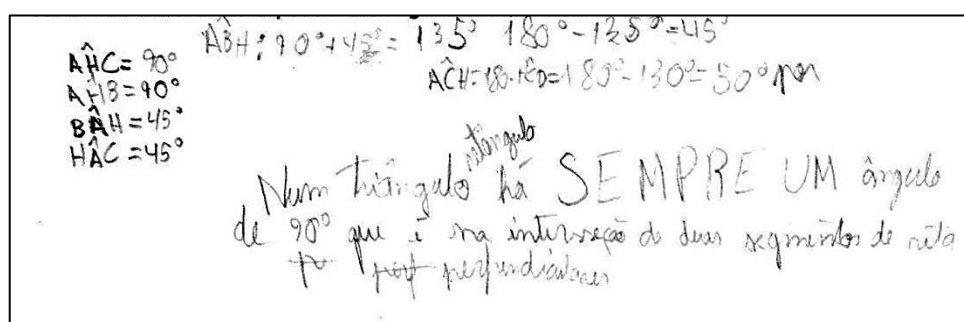 AĤC = 90°
AĤB = 90°
BÂH = 45°
HÂC = 45°
AB̂H: 90° + 45° = 135° 180° - 135° = 45°
AĈH = 180 - = 180° - 130° = 50°
Num triângulo retângulo há SEMPRE UM ângulo
de 90° que é na interseção de duas segmentos de reta
perpendiculares